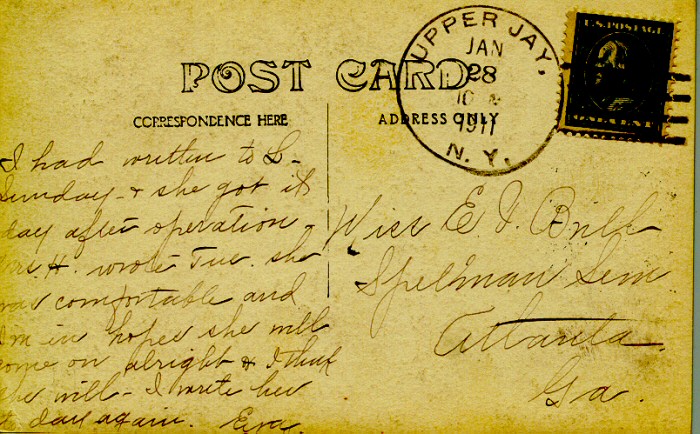 UPPER JAY.
JAN
28
1911
N. Y.
U.S. POSTAGE
POST CARD
CORRESPONDENCE HERE
ADDRESS ONLY
I had written to L-
Sunday - & she got it
day after operation.
Mrs. H. wrote Tue. she
was comfortable and
I'm in hopes she will
come on alright & I think
she will - I wrote her
day again. Eva.
Miss E J
Spelman Sem
Atlanta
Ga.